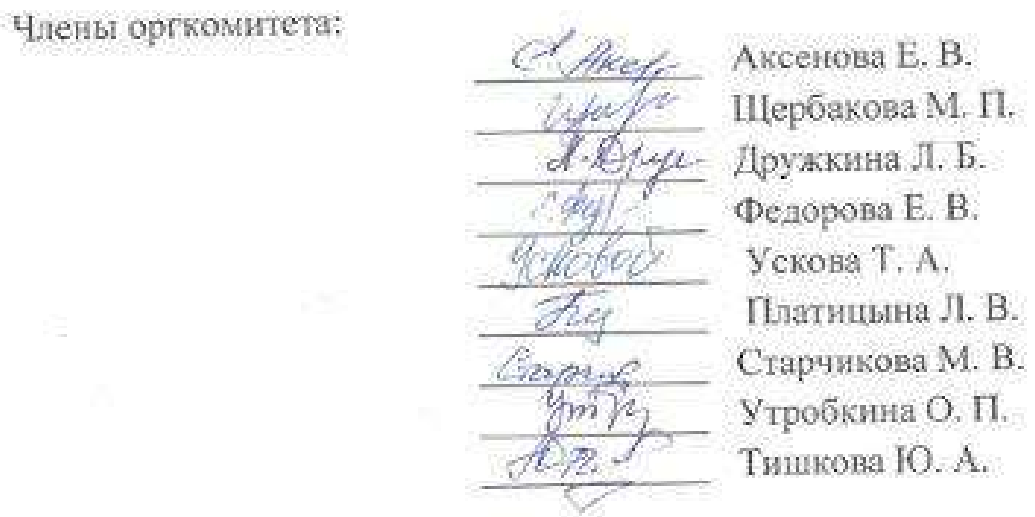 Члены оргкомитета:
Аксенова Е. В.
Щербакова М. П.
Дружкина Л. Б.
Федорова Е. В.
Ускова Т. А.
Платицына Л. В.
Старчикова М. В.
Утробкина О. П.
Тишкова Ю. А.